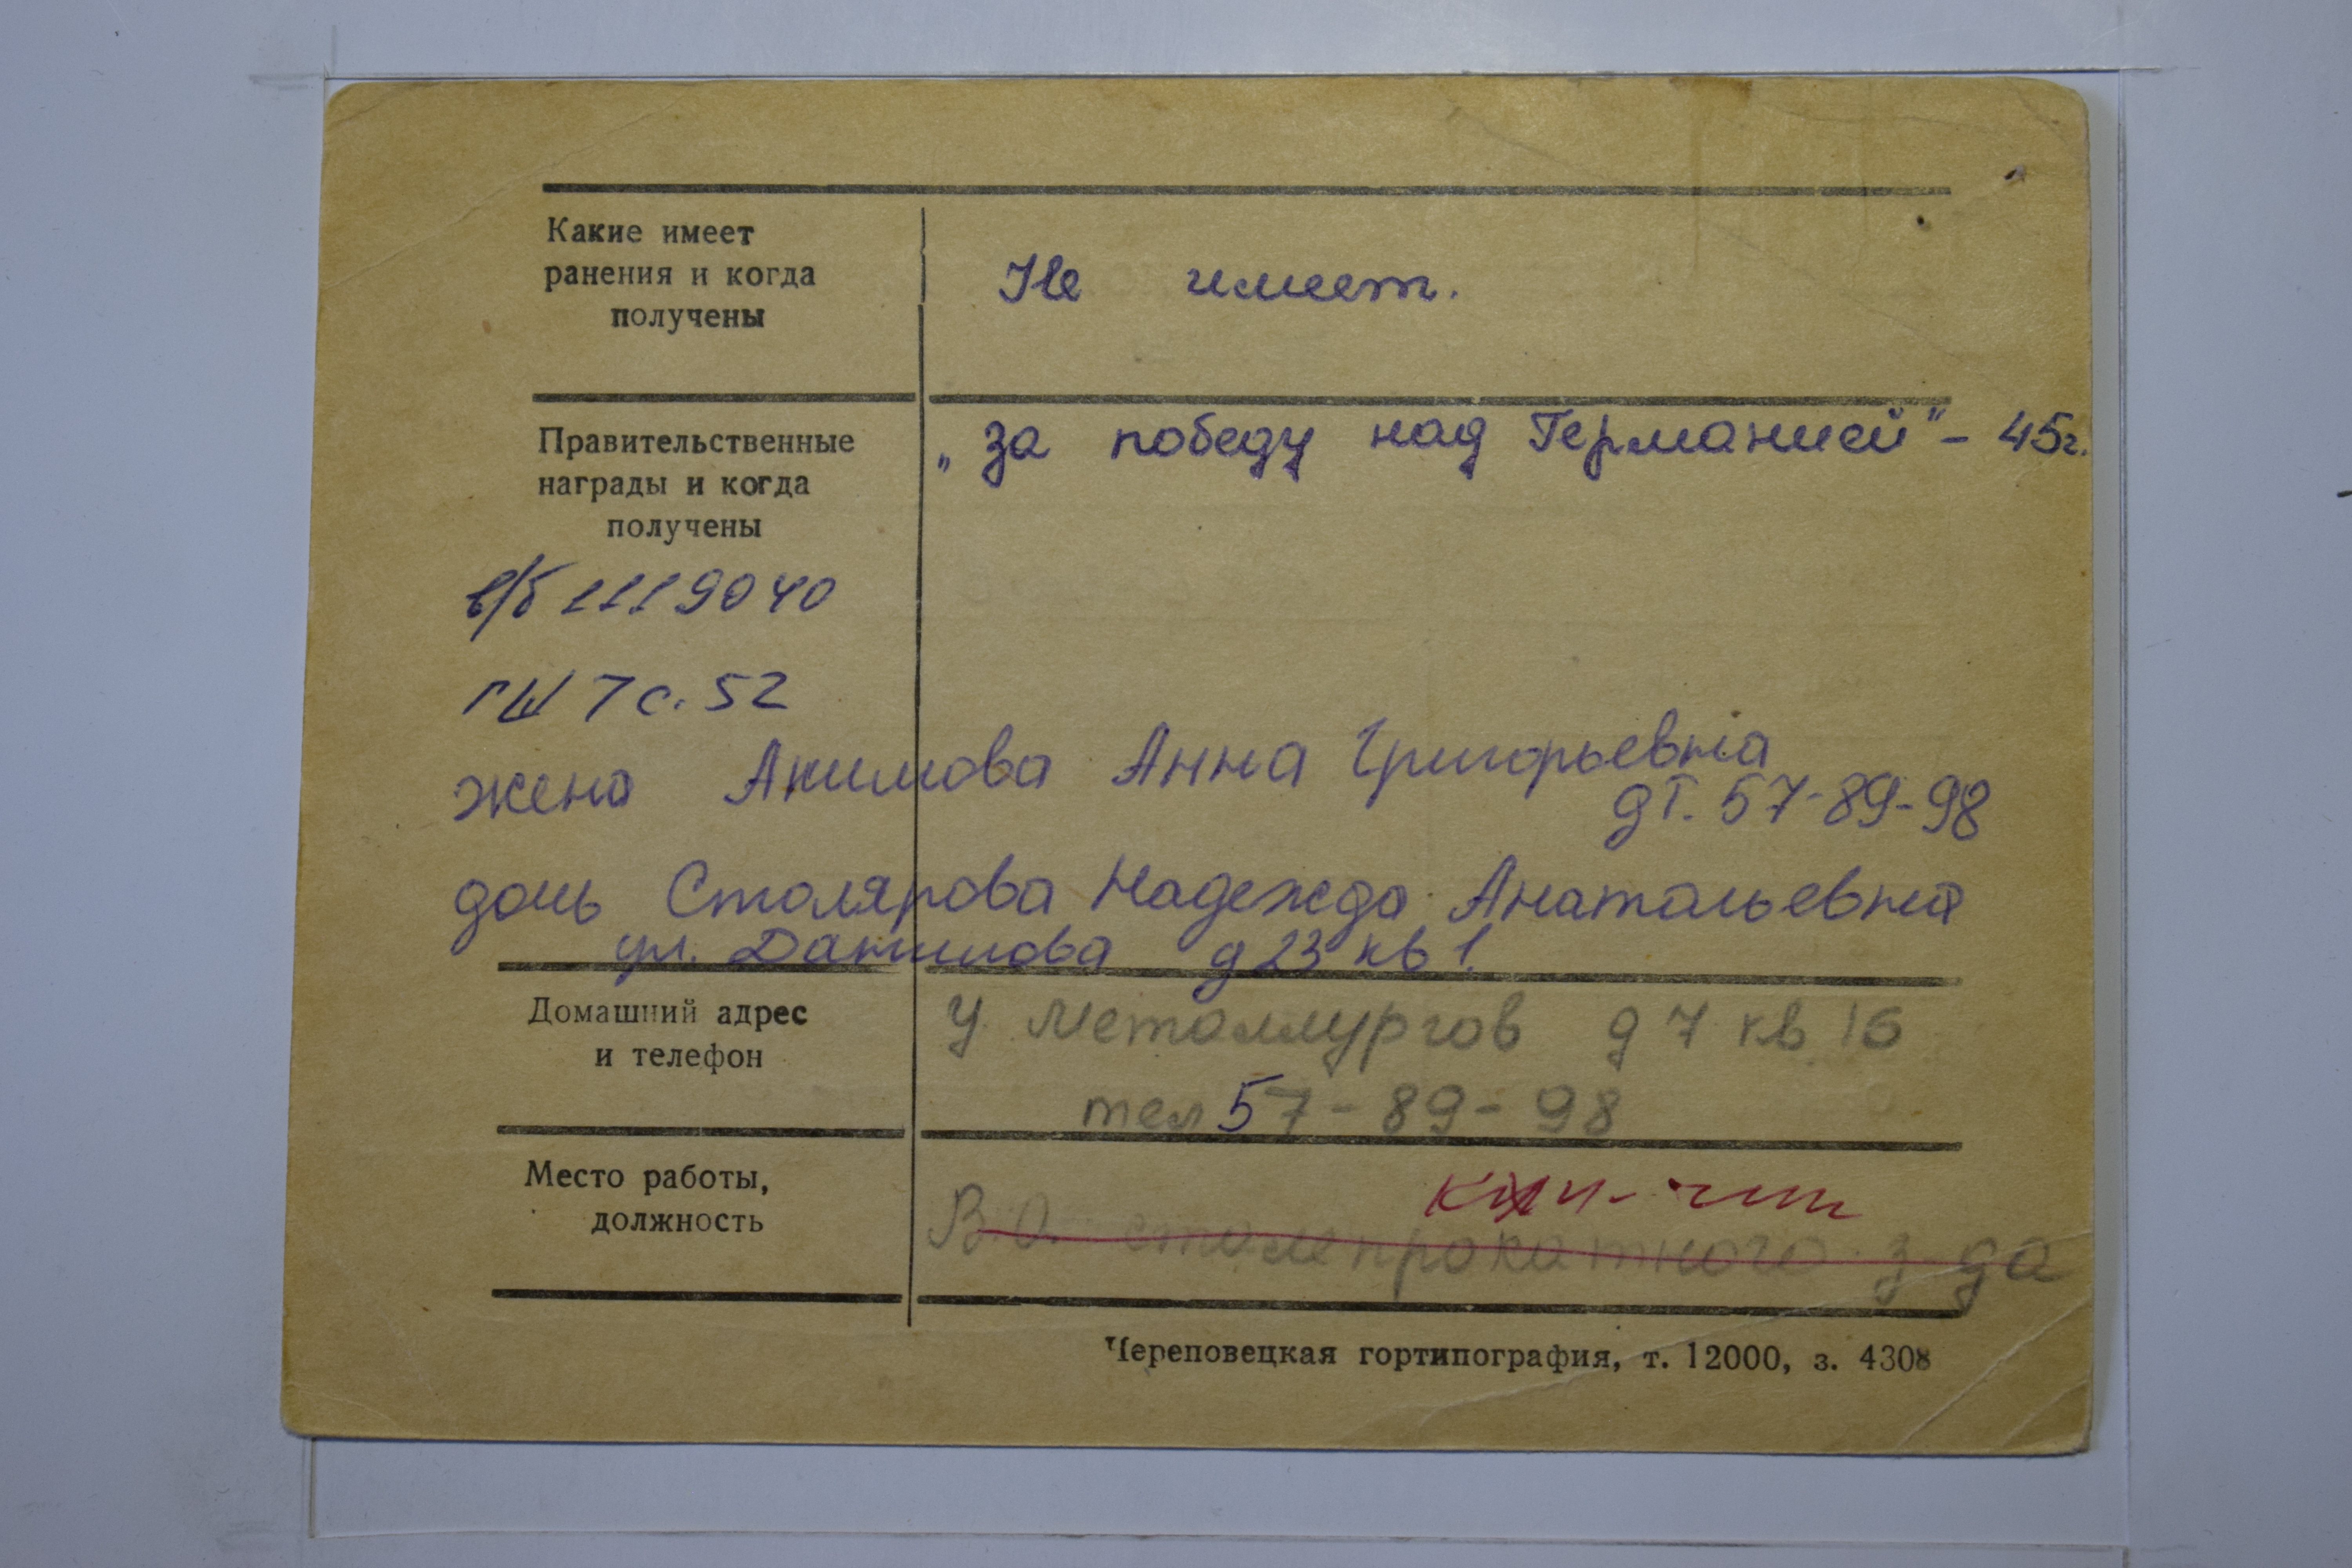 Какие имеет
ранения и когда
получены
Не имеет.
Правительственные
награды и когда
получены
„за победу над Германией" - 45г.
в/б 1119040
ГШ 7 с. 52
жена Акимова Анна Григорьевна
дт. 57-89-98
дочь Столярова Надежда Анатольевна
ул. Данилова д 23 кв 1.
Домашний адрес
и телефон
У Металлургов д 7 кв 16
тел 57-89-98
Место работы,
должность
В.О. сталепрокатного з-да
Череповецкая гортипография, т. 12000, з. 4308